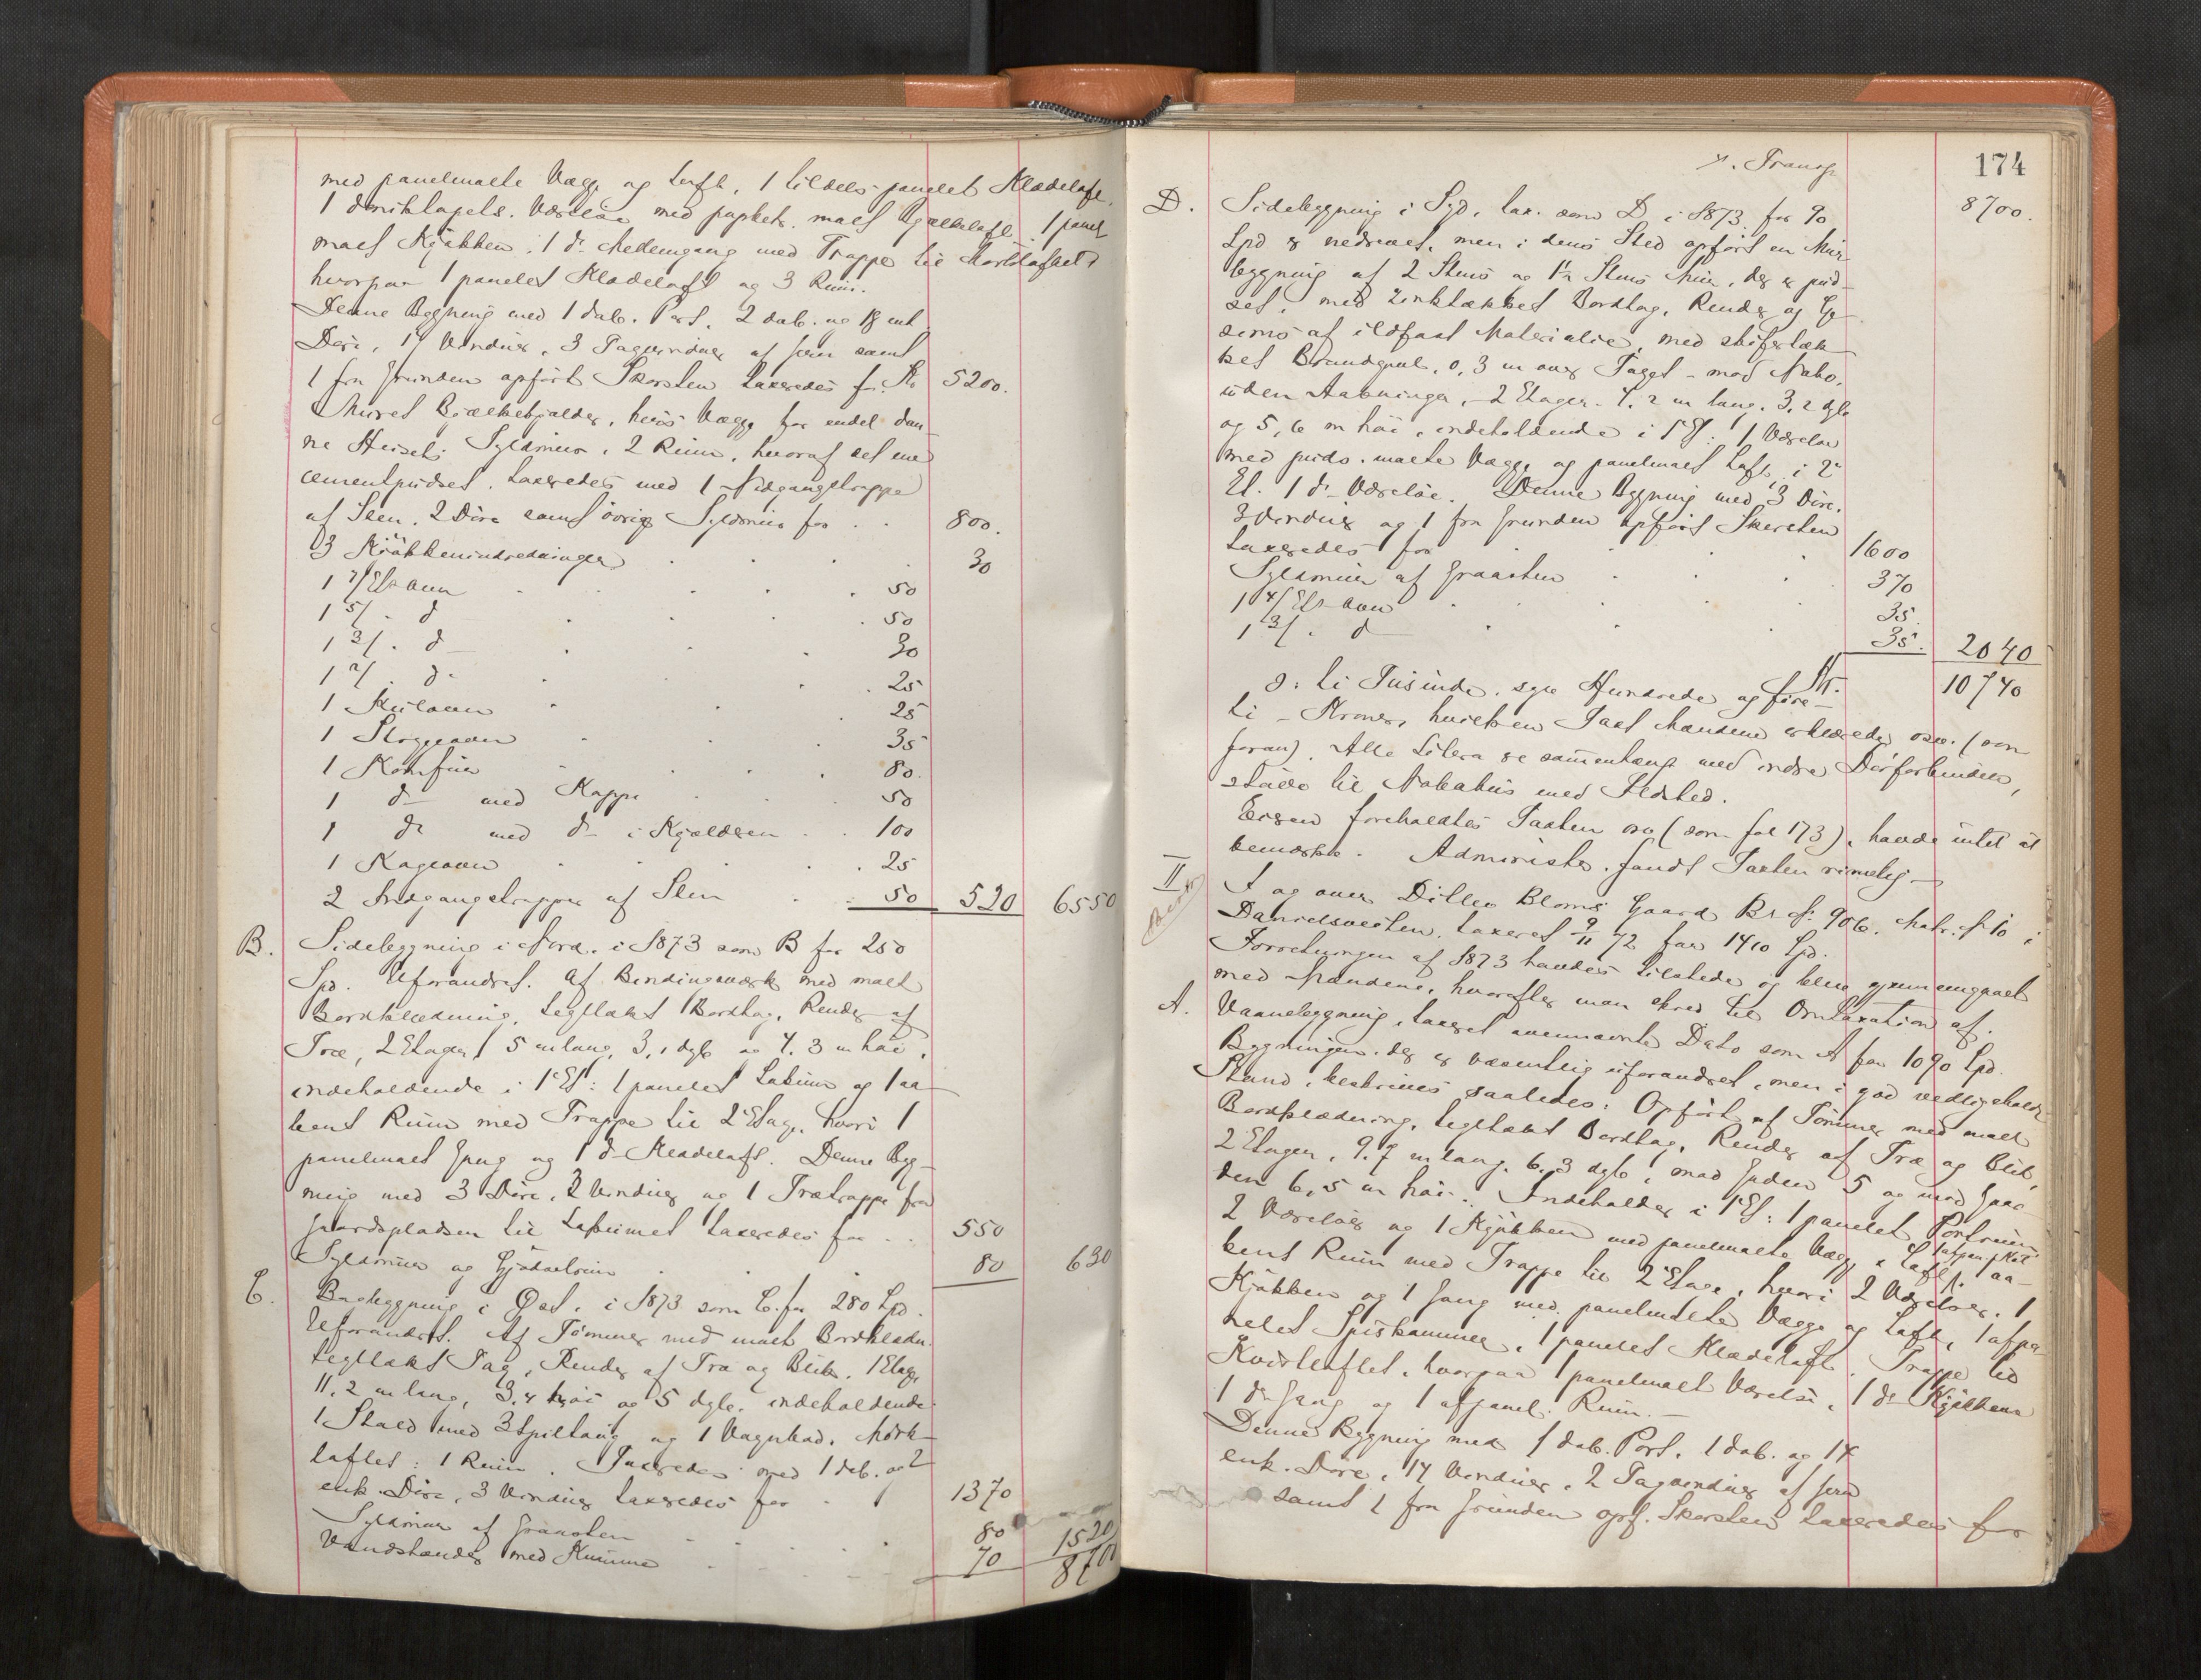 med panelmalte Vægge og Loft, 1 tildels panelet Klædeloft,
1 dørikpapets. Værelse med papket. malt Bjælkeloft. 1 panel
malt Kjøkken, 1 do Mellemgang med Trappe til Mørkloftet
hvorpaa 1 panelet Klædeloft og 3 Rum.
Denne Bygning med 1 dob. Port, 2 dob. og 18 enk
Døre, 17 Vinduer, 3 Tagvinduer af Jern samt
1 fra Grunden opført Skorsten taxeredes for Kr 5200.
Muret Bjælkekjælder, hvis Vægge for endel dan-
ne Husets Syldmur, 2 Rum, hvoraf det ene
cementpudset. taxeredes med 1 Nedgangstrappe
af Sten, 2 Døre samt øvrige Syldmur for . . 800.
3 Kjøkkenindredninger . . . 30
1 7/Ets Ovn . . . . 50
1 5/ . do . . . 50
1 3/ . do . . . 30
1 2/ . do . . . 25
1 Kulovn . . . 25
1 Etageovn . . . 35
1 Komfur . . . 80.
1 do med Kappe . . . 50
1 do med do i Kjælderen . . 100
1 Kageovn . . . 25
2 Indgangstrapper af Sten . . 50 520 6550
B. Sidebygning i Nord. i 1873 som B for 250
Spd. Uforandret. Af Bindingsværk med malt
Bordklædning, tegltækt Bordtag, Render af
Træ, 2 Etager, 5 m lang, 3,1 dyb og 4.3 m høi,
indeholdende i 1 Et: 1 panelet Lokum og 1 aa-
bent Rum med Trappe til 2 Etage, hvori 1
panelmalt Gang og 1 do Klædeloft. Denne Byg-
ning med 3 Døre, 2 Vinduer og 1 Trætrappe fra
Gaardspladsen til Lokumet taxeredes for . . 550
Syldmur og Gjødselrum . . . 80 630
C. Bagbygning i Øst. i 1873 som C. for 280 Spd.
Uforandret. Af Tømmer med malt Bordklædn.
tegltækt Tag, Render af Træ og Blik. 1 Etage,
11,2 m lang, 3,4 høi og 5 dyb. indeholdende
1 Stald med 3 Spiltaug og 1 Vognbod. Mørk-
loftet: 1 Rum. Taxeredes med 1 dob. og 2
enk. Døre, 3 Vinduer taxeredes for . . 1370
Syldmur af Graasten . . . 80 1520
Vandstænder med Kumme . . . 70 8700
174
Transp
8700.
D. Sidebygning i Syd, tax. som D i 1873 for 90
Spd er nedrevet, men i dens Sted opført en Mur-
bygning af 2 Stens og 1½ Stens Mur, der er pud-
set, med zinktækket Bordtag, Render og Ge-
sims af ildfast Materialie, med skifertæk-
ket Brandgavl, 0,3 m over Taget - mod Nabo,
uden Aabninger, - 2 Etager. 4,2 m lang. 3,2 dyb
og 5,6 m høi, indeholdende i 1 Et: 1 Værelse
med puds. malte Vægge og panelmalt Loft, i 2
Et. 1 do Værelse. Denne Bygning med 3 Døre,
3 Vinduer og 1 fra Grunden opført Skorsten
taxeredes for . . . 1600
Syldmur af Graasten . . . 370
1 4/Ets Ovn . . . 35
1 3/ . do . . . 35. 2040
Kr. 10740
o: ti Tusinde, syv Hundrede og fire-
ti - Kroner, hvilken Taxt Mændene erklærede osv. (som
foran). Alle Litera er sammenhængt med indre Dørforbindelse,
støder til Nabohus med Ildsted.
Eieren foreholdtes Taxten osv (som fol 173), havde intet at
bemærke. Administr. fandt Taxten rimelig -
II I og over Ditlev Bloms Gaard Br. №: 906. Matr. № 10 i
Danielsveiten. taxeret 9/11 72 for 1410 Spd.
Forretningen af 1873 havdes tilstede og blev gjennemgaaet
med Mændene, hvorefter man skred til Omtaxation af:
A. Vaanebygning, taxeret ovennævnte Dato som A for 1090 Spd.
Bygningen, der er væsentlig uforandret, men i god vedligeholdt
Stand, beskrives saaledes: Opført af Tømmer med malt
Bordklædning, tegltækt Bordtag, Render af Træ og Blik,
2 Etager, 9.7 m lang, 6,3 dyb, mod Gaden 5 og mod Gaar-
den 6,5 m høi. Indeholder i 1 Et: 1 panelet Portrum
2 Værelser og 1 Kjøkken med panelmalte Vægge & Loft, 1 aa-
bent Rum med Trappe til 2 Etage, hvori 2 Værelser, 1
Kjøkken og 1 Gang med panelmalte Vægge og Loft, 1 afpa-
nelet Spiskammer, 1 panelet Klædeloft. Trappe til
Kvistloftet, hvorpaa 1 panelmalt Værelse, 1 do Kjøkken
1 do Gang og 1 afpanel. Rum. -
Denne Bygning med 1 dob. Port, 1 dob. og 14
enk. Døre, 14 Vinduer, 2 Tagvinduer af Jern
samt 1 fra Grunden opf. Skorsten taxeredes for